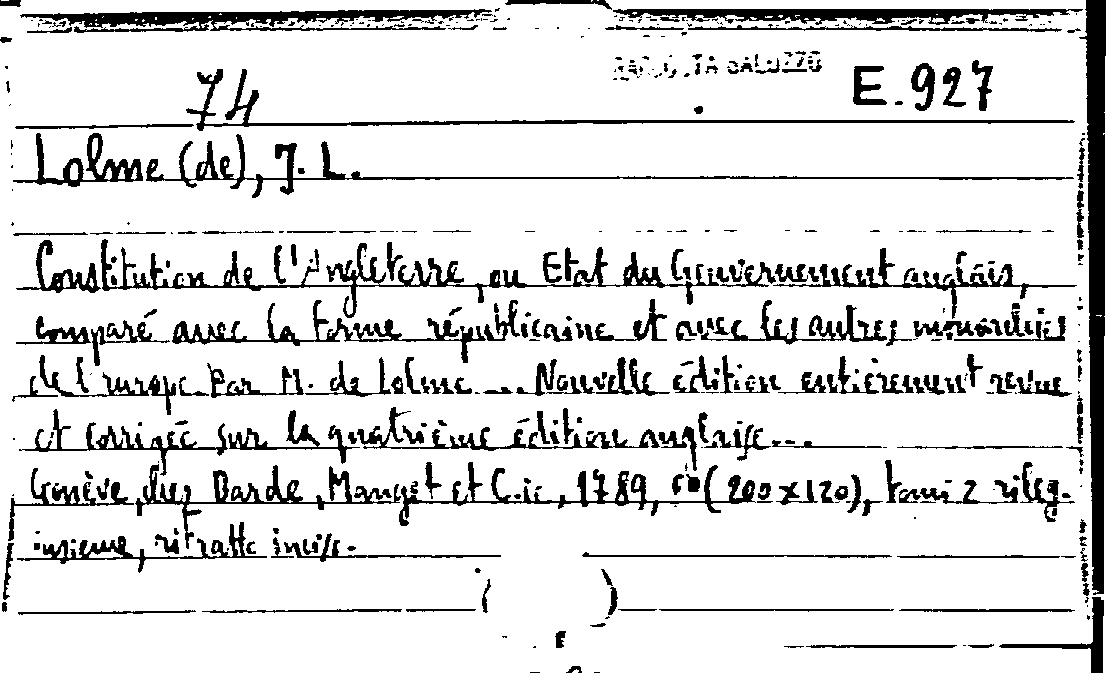 RACCOLTA SALUZZO
74 E.927
Lolme (de), J. L.
Constitution de l'Angleterre, ou Etat du Gouvernement anglais,
comparé avec la forme républicaine et avec les autres monarchies
de l'Europe. Par M. de Lolme ... Nouvelle édition entièrement revue
et corrigée sur la quatrième édition anglaise...
Genève, chez Barde, Manget et C.ie, 1789, 8° (200 x 120), tomi 2 rileg.
insieme, ritratto incis.